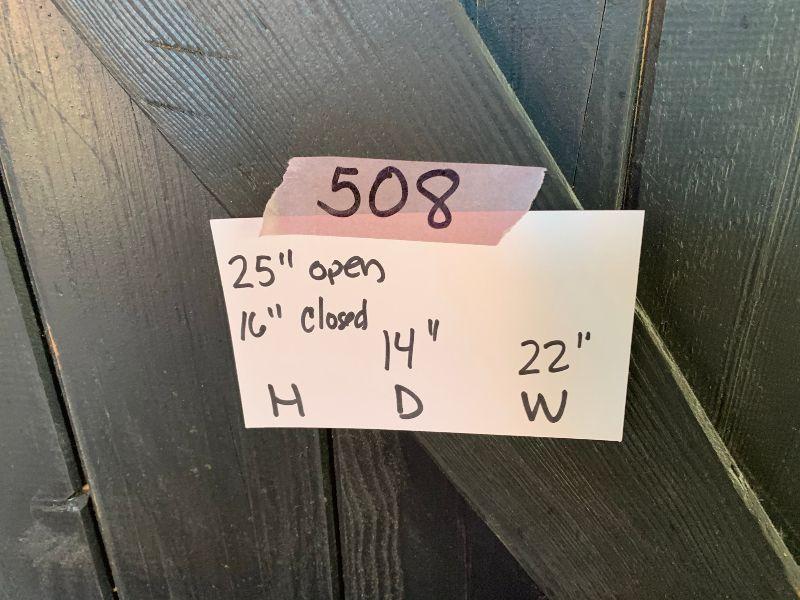 508
25" open
16" closed
14" 22"
H D W